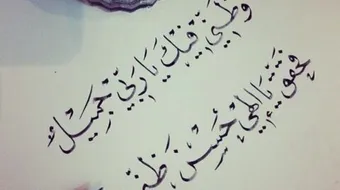 وَظَنِّي فِيكَ يَا رَبِّي جَمِيلٌ
فَحَقِّقْ يَا إِلٰهِي حُسْنَ ظَنِّي